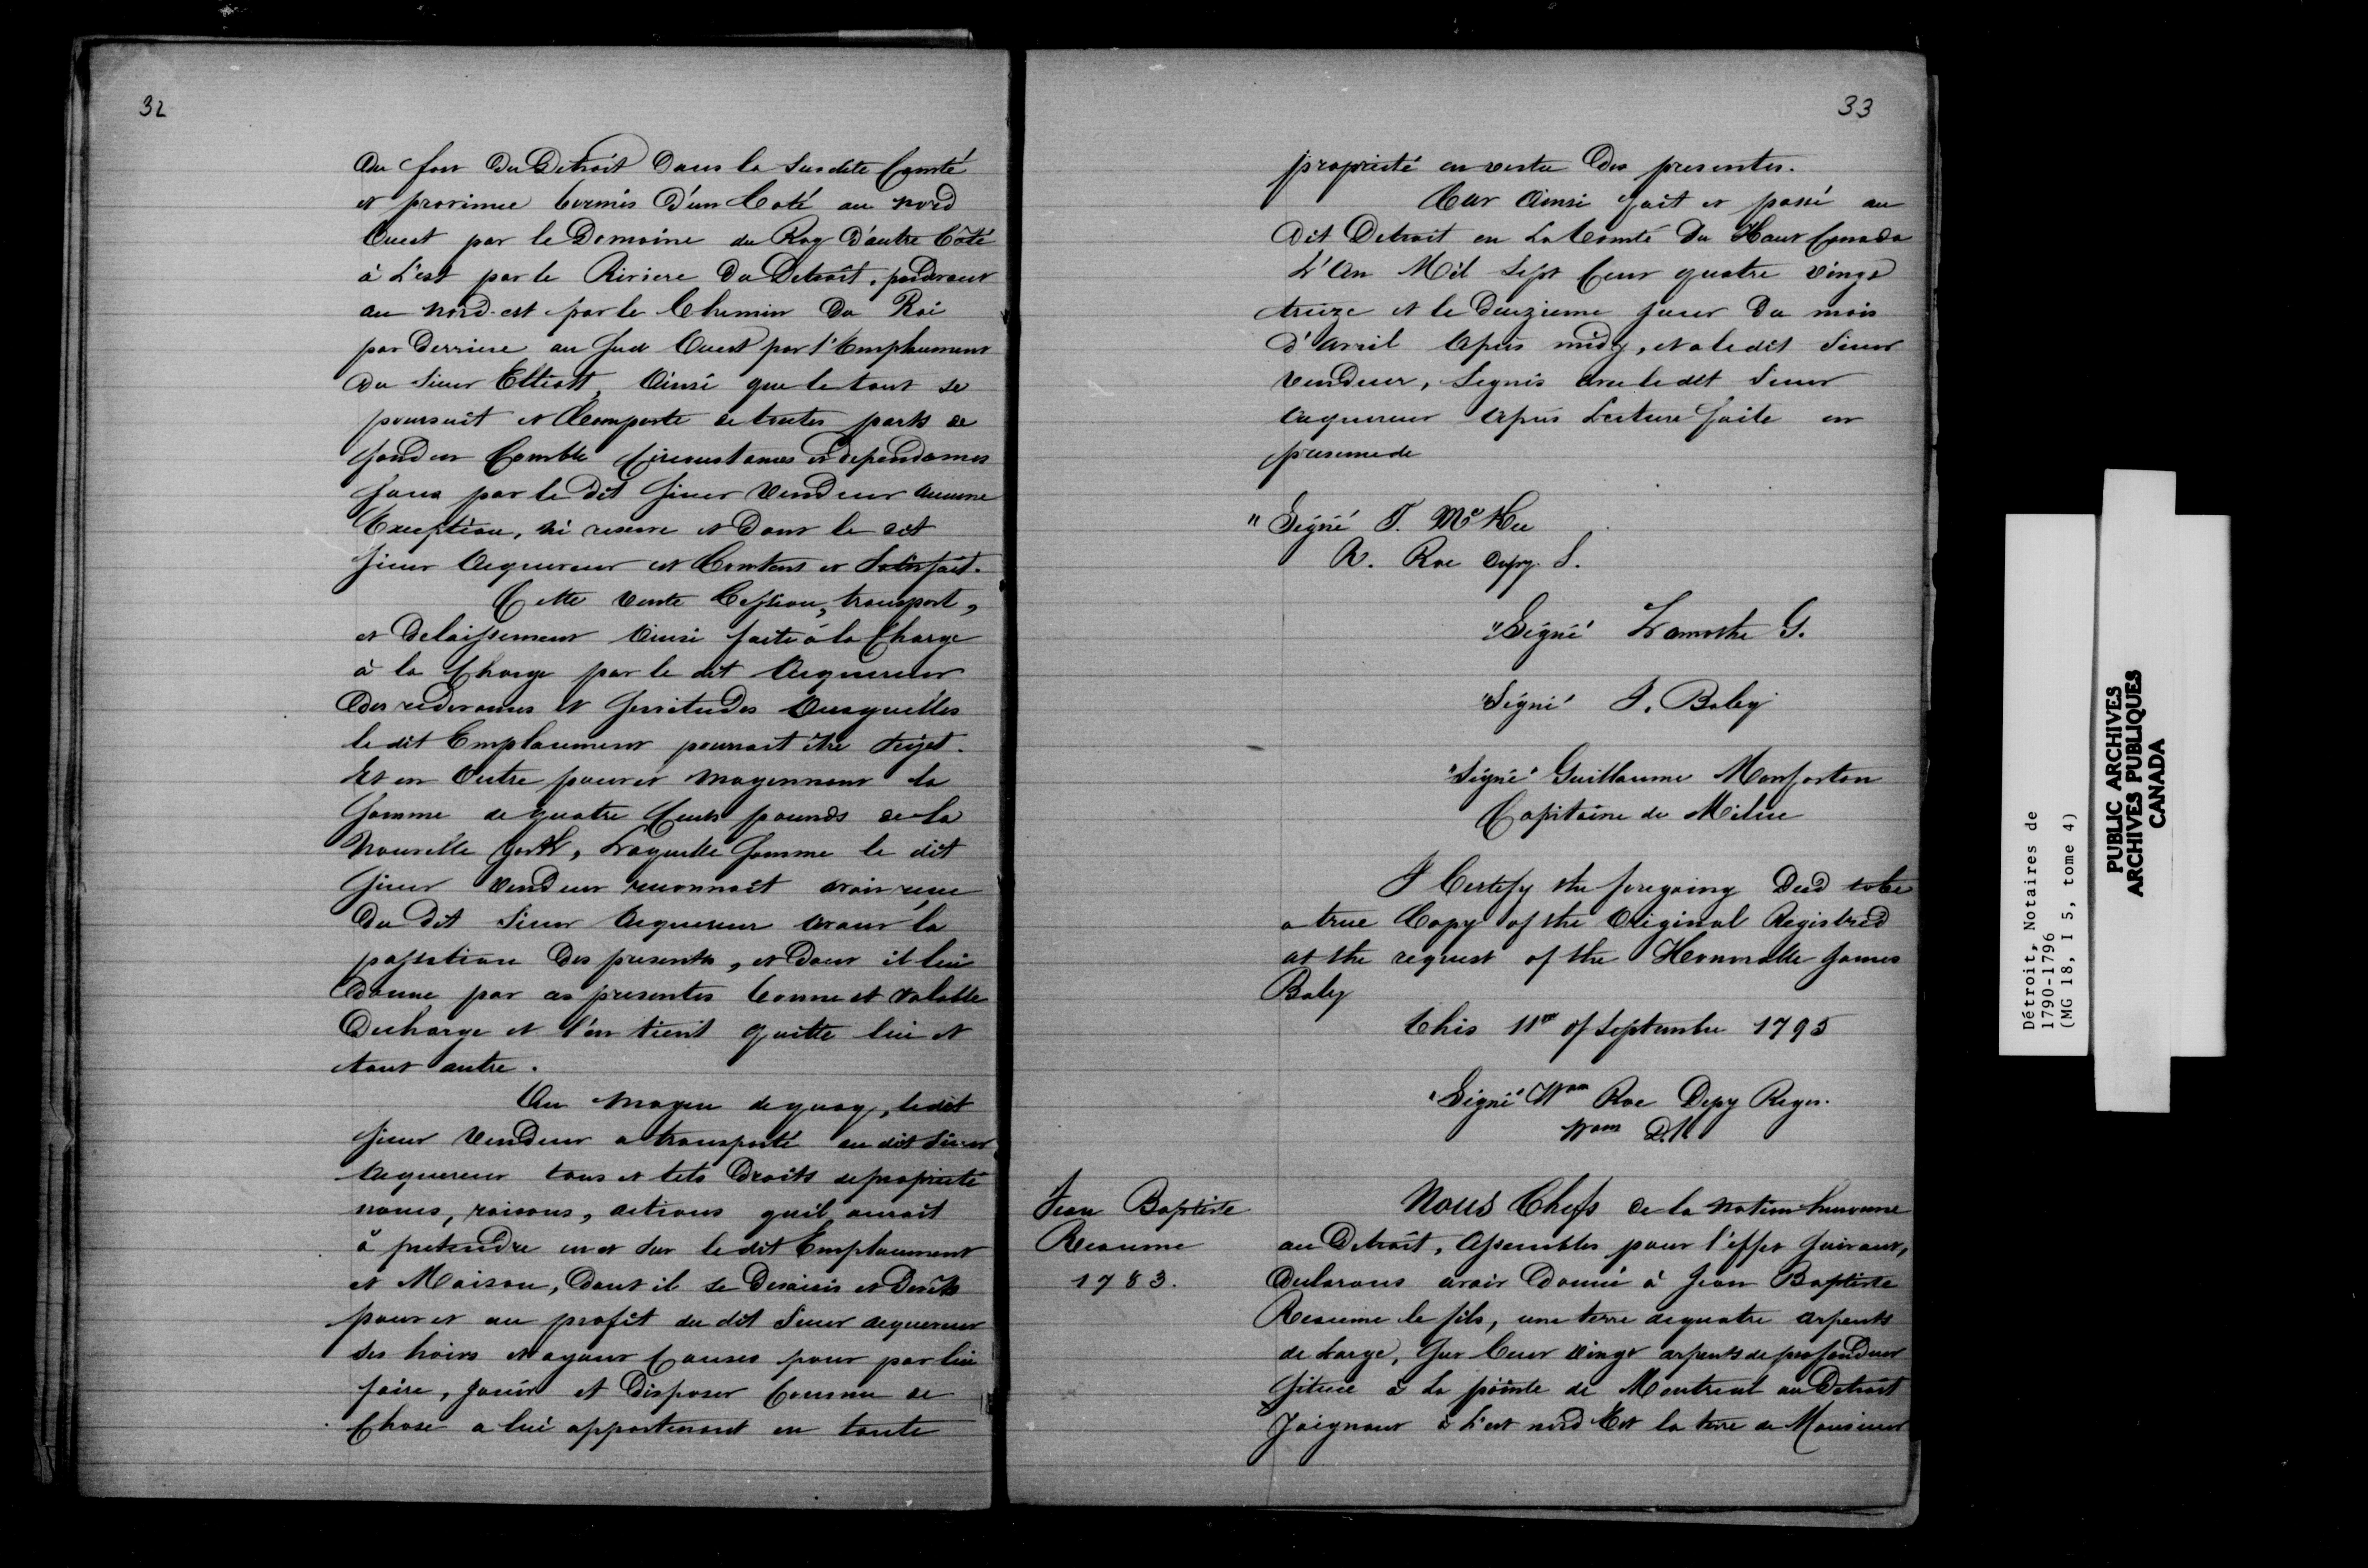 32
du fort du Detroit dans la susdite Comté
et province bornés d'un Coté au nord
Ouest par le Domaine du Roy d'autre Côté
à L'est par le Riviere du Detroit, par devant
au nord-est par le Chemin du Roi
par derriere au Sud Ouest par l'Emplacement
du Sieur Elliott, Ainsi que le tout se
poursuit et Comporte de toutes parts de
fond en Comble Circonstances et dependances
sans par le dit Sieur Vendeur Aucune
Exception, ni reserve et dont le dit
Sieur Acquereur est Content et Satisfait.
Cette Vente Cession, transport,
et Delaissement Ainsi faite à la Charge
à la Charge par le dit Acquereur
des redevances et Servitudes Auxquelles
le dit Emplacement pourrait être Sujet.
Et en Outre pour et moyennant la
Somme de quatre Cents pounds de la
Nouvelle York, Laquelle Somme le dit
Sieur Vendeur reconnait avoir reçue
du dit Sieur Acquereur avant la
passation des presentes, et dont il lui
donne par ces presentes bonne et valable
Decharge et l'en tient quitte lui et
tout autre.
Au moyen de quoy, le dit
Sieur Vendeur a transporté au dit Sieur
Acquereur tous et tels Droits de propriété
noms, raisons, actions qu'il aurait
à pretendre en et sur le dit Emplacement
et Maison, dont il se Desaisis et Devêts
pour et au profit du dit Sieur acquereur
ses hoirs et ayant Causes pour par lui
faire, jouir et Disposer Comme de
Chose a lui appartenant en toute
33
propriété en vertu des presentes.
Car Ainsi fait et passé au
dit Detroit en La Comté du Haut Canada
L'An Mil Sept Cent quatre vingt
treize et le deuzieme jour du mois
d'Avril Après midy, et a le dit Sieur
Vendeur, Signés avec le dit Sieur
acquereur après Lecture faite en
presence de
"Signé" T. McKee
R. Roe Depy. S.
"Signé" Lamothe G.
"Signé" J. Baby
"Signé" Guillaume Monforton
Capitaine de Milice
I Certify the foregoing Deed to be
a true Copy of the Original Registred
at the request of the Honorable James
Baby
this 11th of Septembre 1795
"Signé" Wam Roe Depy Reger.
Wam D.R
Jean Baptiste
Reaume
1783.
Nous Chefs de la Nation huronne
au Detroit, Assemblés pour l'effet Suivant,
declarons avoir Donné à Jean Baptiste
Reaume le fils, une terre de quatre arpents
de Large, Sur Cent vingt arpents de profondeur
Située à La pointe de Montreal au Detroit
Joignant à L'est nord Est la terre de Monsieur
Détroit, Notaires de
1790-1796
(MG 18, I 5, tome 4)
PUBLIC ARCHIVES
ARCHIVES PUBLIQUES
CANADA